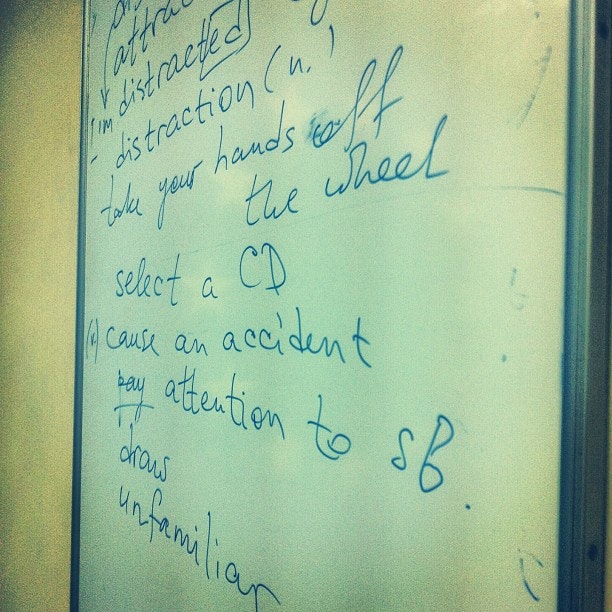 distracted
- distraction (n.)
take your hands off
the wheel
select a CD
(v) cause an accident
pay attention to sb.
draw
unfamiliar